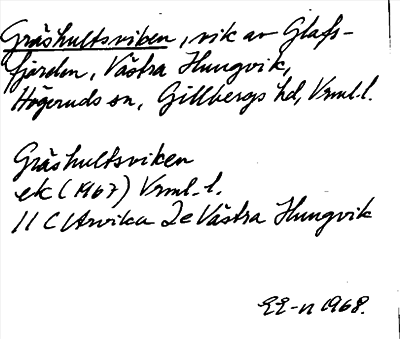 Gräshultsviken, vik av Glafs-
fjorden, Västra Hungvik,
Högeruds sn, Gillbergs hd, Vrml. l.
Gräshultsviken
ek (1967) Vrml. l.
11 C Arvika 2e Västra Hungvik
EE-n 1968.